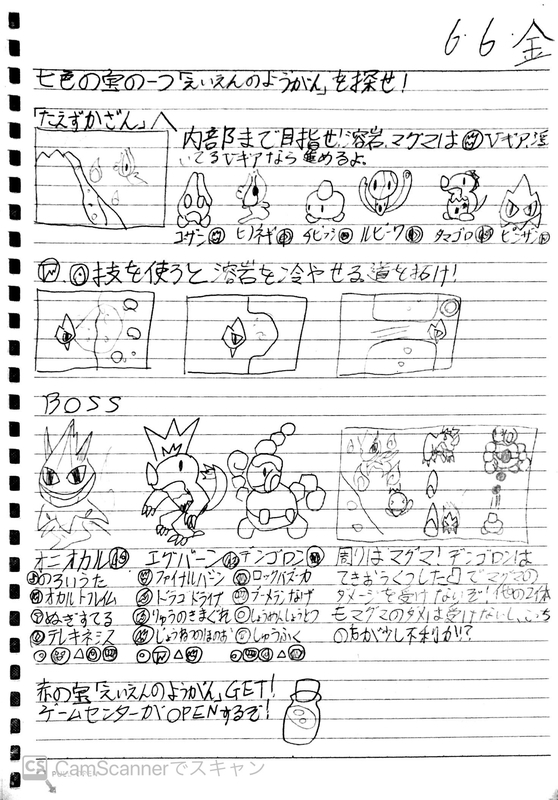 6.6.金
七色の宝の一つ「えいえんのようがん」を探せ!
「たえずかざん」へ
内部まで目指せ!溶岩、マグマは
Vギア、浮
いてるVギアなら進めるよ。
コザン
ヒノネギ
ルビーワ
タマゴロ
技を使うと溶岩を冷やせる、道を拓け!
BOSS
オニオカル
エゲバーン
デンゴロン
のろいうた
オカルトフレイム
ぬぎすてる
テレキネシス
ファイナルバーン
ドラゴドライブ
りゅうのきまぐれ
じょうねつのほのお
ロックバズーカ
ブーメランなげ
しょうめんしょうとつ
しゅうふく
周りはマグマ!デンゴロンは
てきおうくつした
でマグマの
ダメージを受けないぞ!他の2体
もマグマのダメは受けないし、こっち
の方が少し不利か!?
赤の宝「えいえんのようがん」GET!
ゲームセンターがOPENするぞ!
CS CamScannerでスキャン